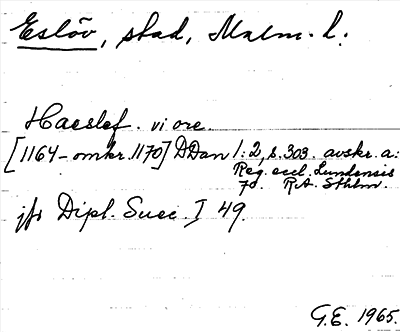 Eslöv, stad, Malm. l.
Haeslef. vi ore.
[1164-omkr. 1170] DDan 1:2, s. 303. avskr. a:
Reg. eccl. Lundensis
70. R.A. Sthlm.
jfr Dipl. Suec. I 49.
G.E. 1965.